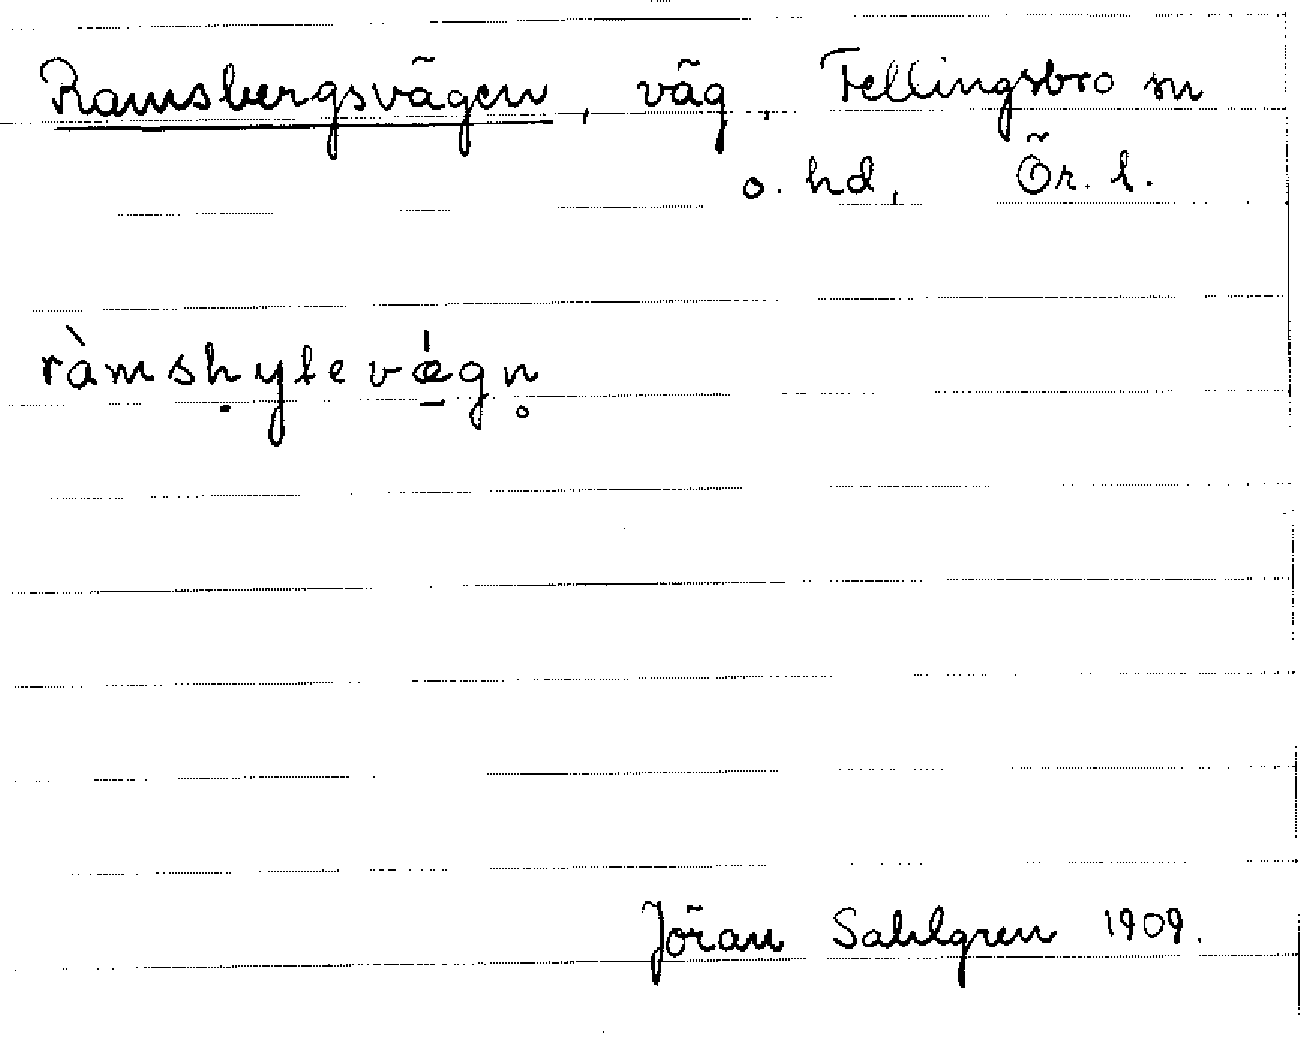 Ramsbergsvägen, väg, Fellingsbro sn
o. hd, Ör. l.
ràmsḥylevǽ̱gn̥
Jöran Sahlgren 1909.